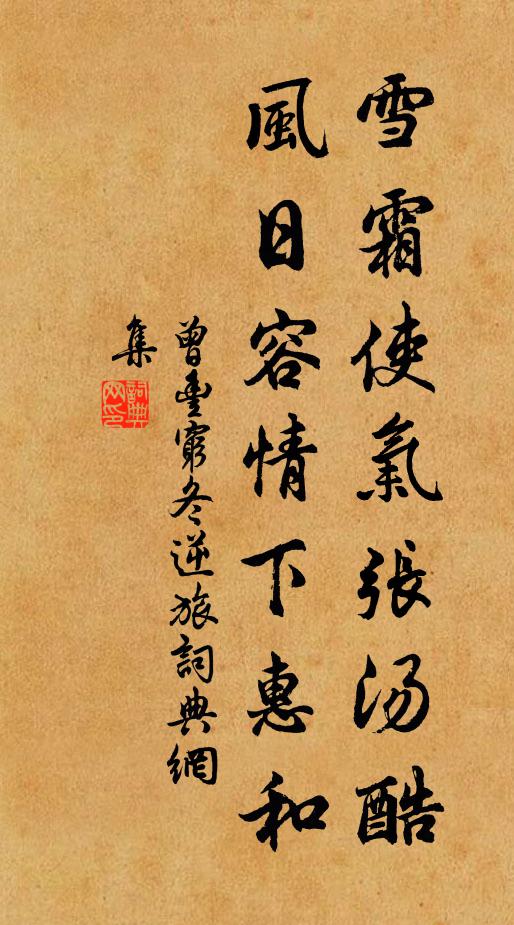 雪霜使氣張湯酷
風日容情下惠和
曾豐窮冬逆旅詞典網
集
詞典網印